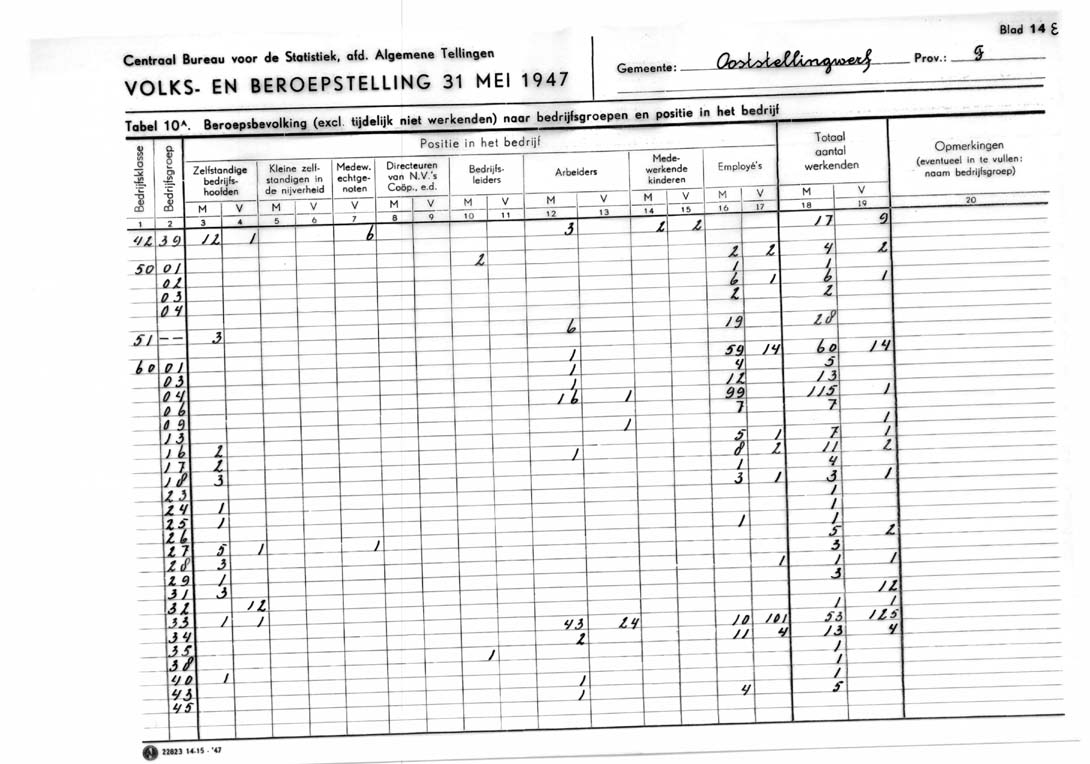 Blad 14 E
Centraal Bureau voor de Statistiek, afd. Algemene Tellingen
VOLKS- EN BEROEPSTELLING 31 MEI 1947
Gemeente: Ooststellingwerf Prov.: F
Tabel 10A. Beroepsbevolking (excl. tijdelijk niet werkenden) naar bedrijfsgroepen en positie in het bedrijf
Bedrijfsklasse Bedrijfsgroep Positie in het bedrijf Totaal aantal werkenden Opmerkingen (eventueel in te vullen: naam bedrijfsgroep)
Zelfstandige bedrijfshoofden Kleine zelfstandigen in de nijverheid Medew. echtgenoten Directeuren van N.V.'s Coöp., e.d. Bedrijfsleiders Arbeiders Medewerkende kinderen Employé's
M V M V V M V M V M V M V M V M V
1 2 3 4 5 6 7 8 9 10 11 12 13 14 15 16 17 18 19 20
42 39 12 1 6 3 2 2 17 9
50 01 2 2 2 4 2
02 1 1
03 6 1 6 1
04 2 2
51 -- 3 6 19 28
60 01 1 59 14 60 14
03 1 4 5
04 1 12 13
06 16 1 99 115 1
09 7 7
13 1 1
16 2 5 1 7 1
17 2 1 8 2 11 2
18 3 1 4
23 3 1 3 1
24 1 1
25 1 1
26 1 1
27 5 1 1 5 2
28 3 3
29 1 1 1 1
31 3 3
32 12 12
33 1 1 1 1
34 43 24 10 101 53 125
35 2 11 4 13 4
38 1 1
40 1 1
43 1 1
45 1 4 5
22823 14-15 - '47